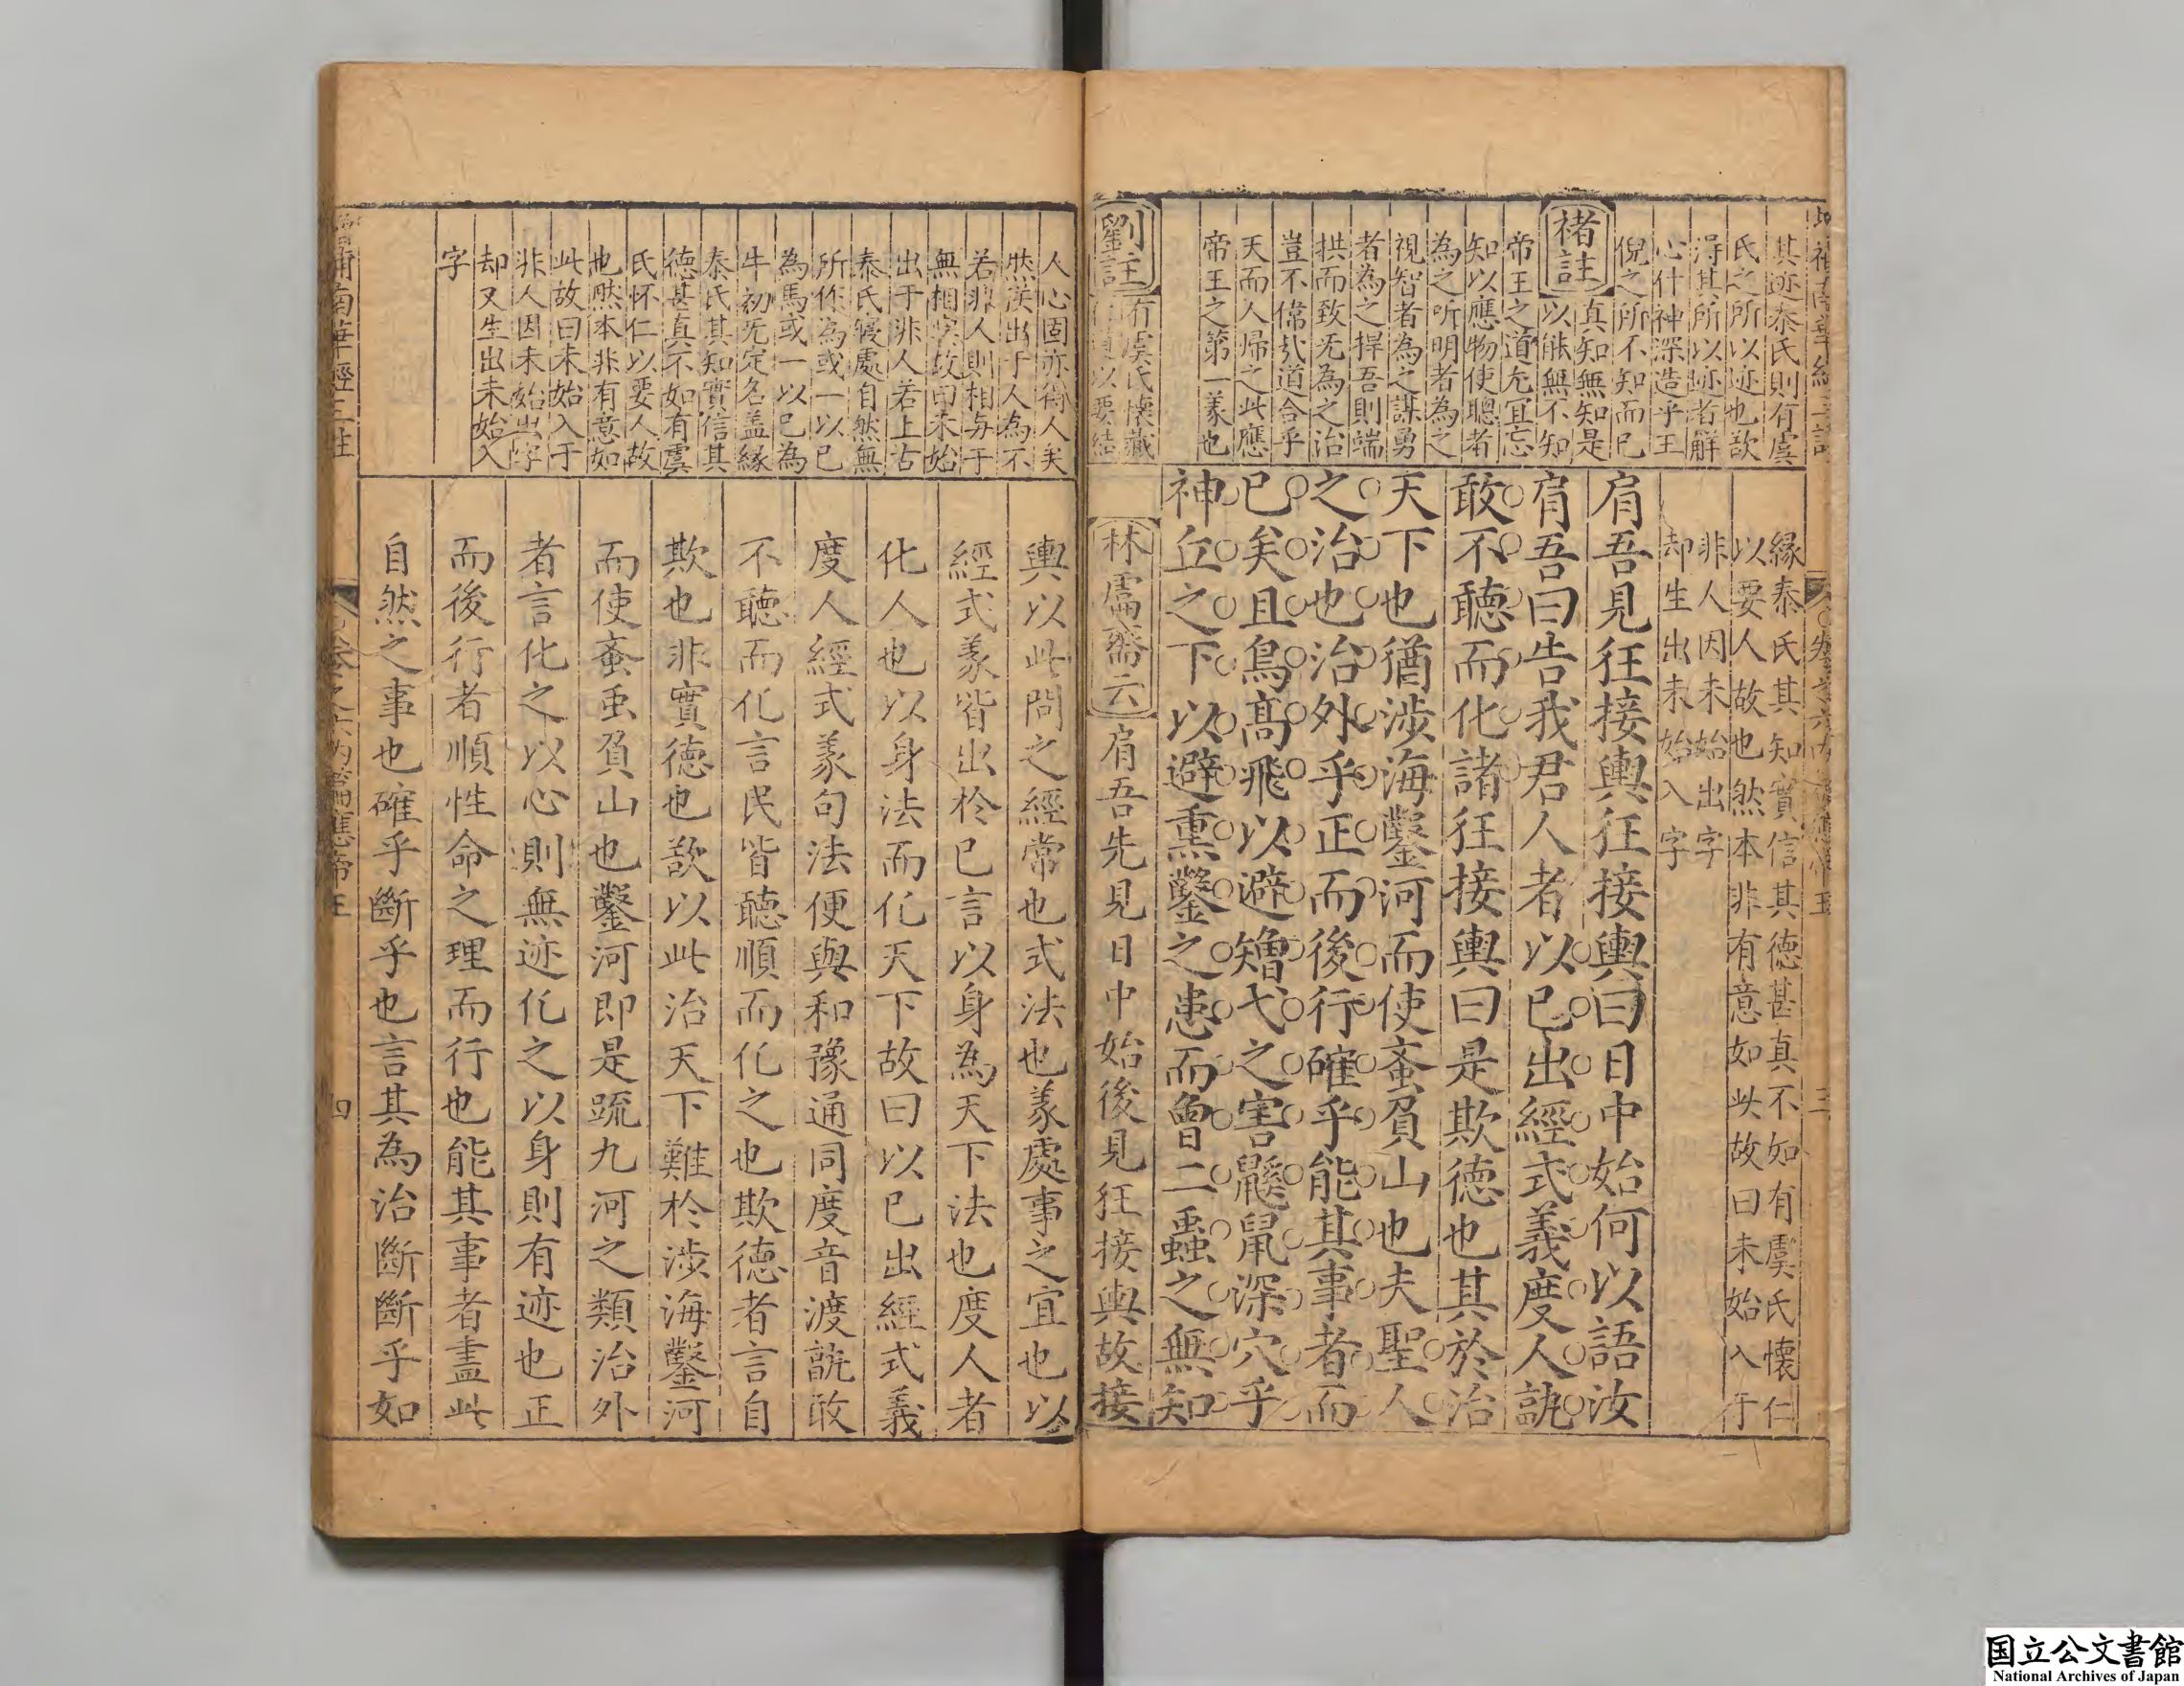 其迹泰氏則有虞
氏之所以迹也欤
淂其所以迹者觧
心什神深造乎王
倪之所不知而已
褚註
真知無知是
以能無不知
帝王之道尤宜忘
知以應物使聰者
為之听明者為之
視智者為之謀勇
者為之捍吾則端
拱而致无為之治
豈不偉㢤道合乎
天而人帰之此應
帝王之第一義也
劉註
有虞氏懐藏
以要結
緣泰氏其知實信其德甚真不如有虞氏懷仁
以要人故也然本非有意如此故曰未始入于
非人因未始出字
却生出未始入字
肩吾見狂接輿狂接輿曰日中始何以語汝
肩吾曰告我君人者以已出經式義度人孰
敢不聽而化諸狂接輿曰是欺德也其於治
天下也猶涉海鑿河而使蚉負山也夫聖人
之治也治外乎正而後行確乎能其事者而
已矣且鳥高飛以避矰弋之害鼷鼠深穴乎
神丘之下以避熏鑿之患而曾二蟲之無知
林鬳齋云
肩吾先見日中始後見狂接輿故接
人心固亦得人矣
出于人為不
若非人則相与于
無相与故曰未始
出于非人若上古
泰氏寢處自然無
所作為或一以已
為馬或一以已為
牛初无定名盖緣
泰氏其知實信其
德甚真不如有虞
氏怀仁以要人故
也然本非有意如
此故曰未始入于
非人因未始出字
却又生出未始入
字
輿以此問之經常也式法也義處事之宜也以
經式義皆出於已言以身為天下法也度人者
化人也以身法而化天下故曰以已出經式義
度人經式義句法便與和豫通同度音渡孰敢
不聽而化言民皆聽順而化之也欺德者言自
欺也非實德也欤以此治天下難於涉海鑿河
而使蚉虽負山也鑿河即是疏九河之類治外
者言化之以心則無迹化之以身則有迹也正
而後行者順性命之理而行也能其事者盡此
自然之事也確乎斷乎也言其為治斷斷乎如
四
国立公文書館
National Archives of Japan